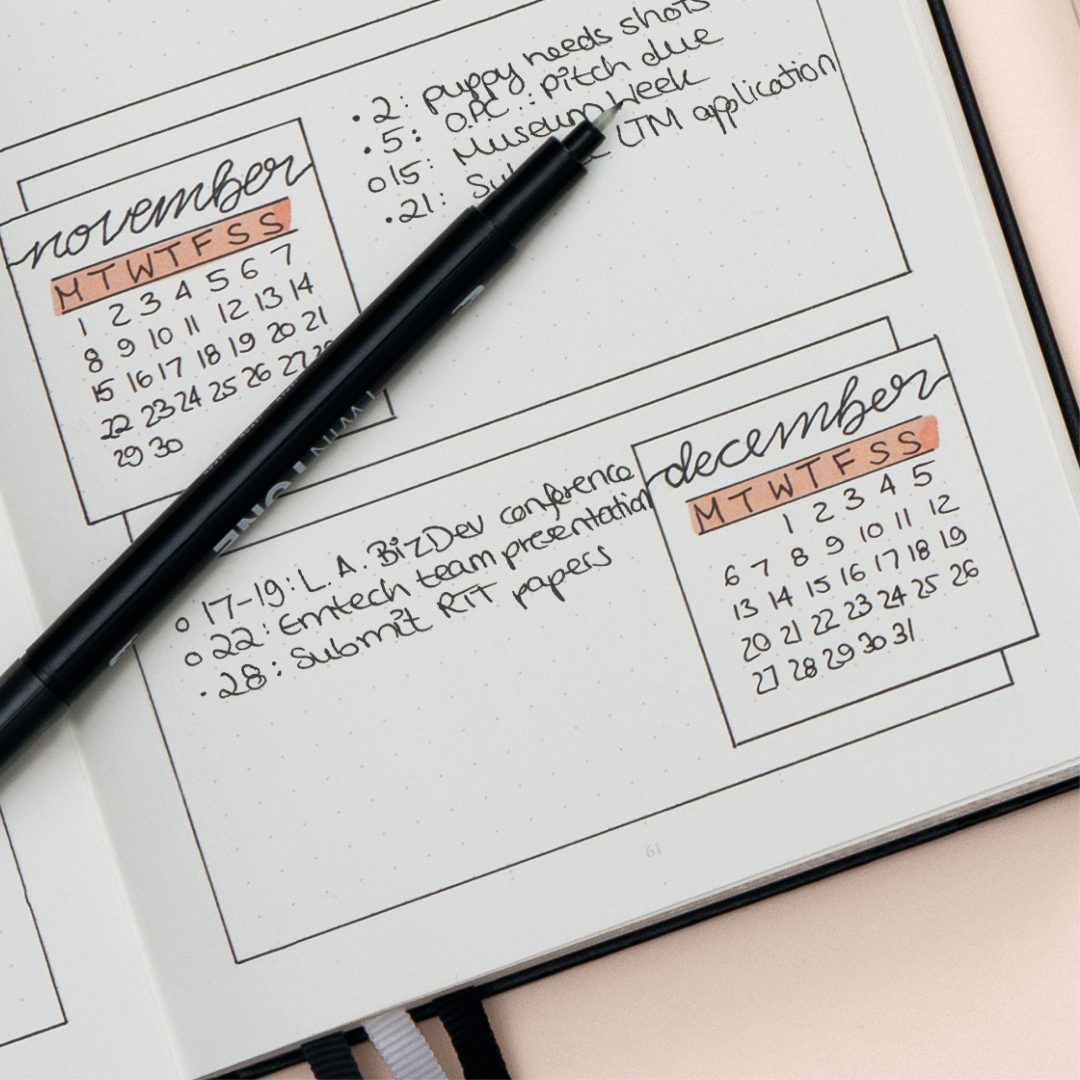 • 2: puppy needs shots
• 5: O.P.C.: pitch due
o 15: Museum Week
• 21: LTM application
november
M T W T F S S
1 2 3 4 5 6 7
8 9 10 11 12 13 14
15 16 17 18 19 20 21
22 23 24 25 26 27 28
29 30
TWIN
TONE
december
M T W T F S S
1 2 3 4 5
6 7 8 9 10 11 12
13 14 15 16 17 18 19
20 21 22 23 24 25 26
27 28 29 30 31
o 17-19: L.A. BizDev conference
o 22: Emtech team presentation
• 28: Submit RIT papers
61